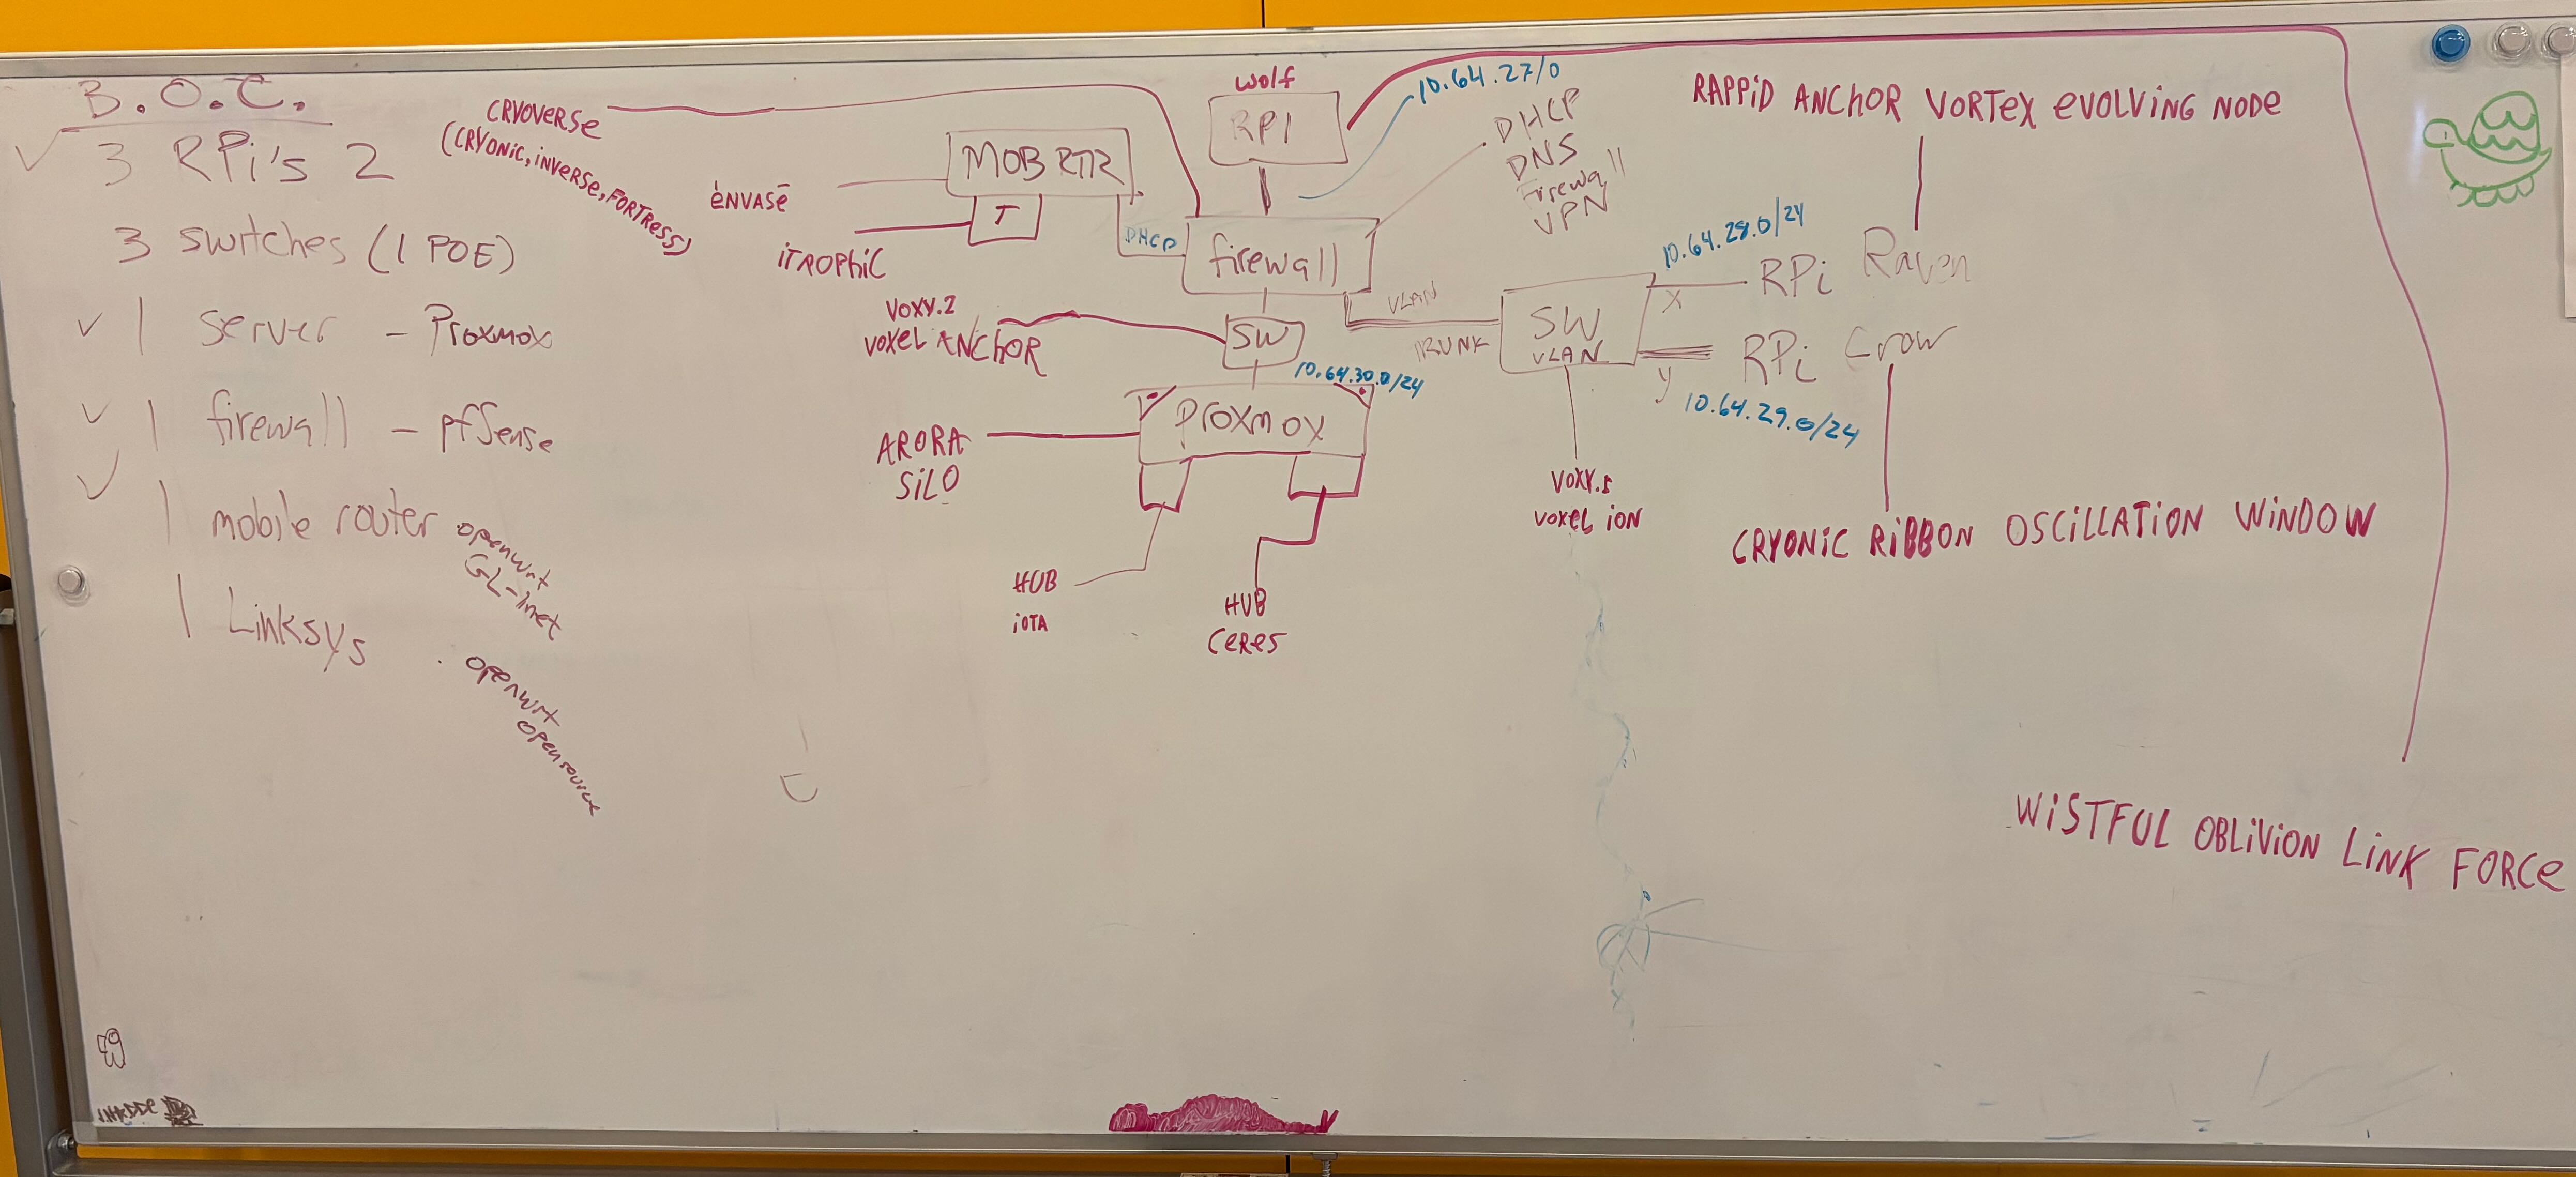 B.O.C.
3 RPi's 2
3 switches (1 POE)
1 server - Proxmox
1 firewall - pfSense
1 mobile router openwrt
GL-inet
1 Linksys openwrt
opensource
CRYOVERSE
(CRYONIC, INVERSE, FORTRESS)
ENVASE
ITROPHIC
MOB RTR
T
DHCP
wolf
RPI
10.64.27/0
DHCP
DNS
Firewall
VPN
firewall
VOXY.2
VOXEL ANCHOR
SW
10.64.30.0/24
Proxmox
ARORA
SILO
HUB
IOTA
HUB
CERES
VLAN
TRUNK
SW
VLAN
10.64.28.0/24
X
RPi Raven
RPi Crow
y
10.64.29.0/24
VOXEL ION
RAPPID ANCHOR VORTEX EVOLVING NODE
CRYONIC RIBBON OSCILLATION WINDOW
WISTFUL OBLIVION LINK FORCE